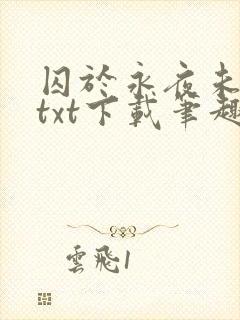 囚於永夜未
txt下載筆趣
雲飛1